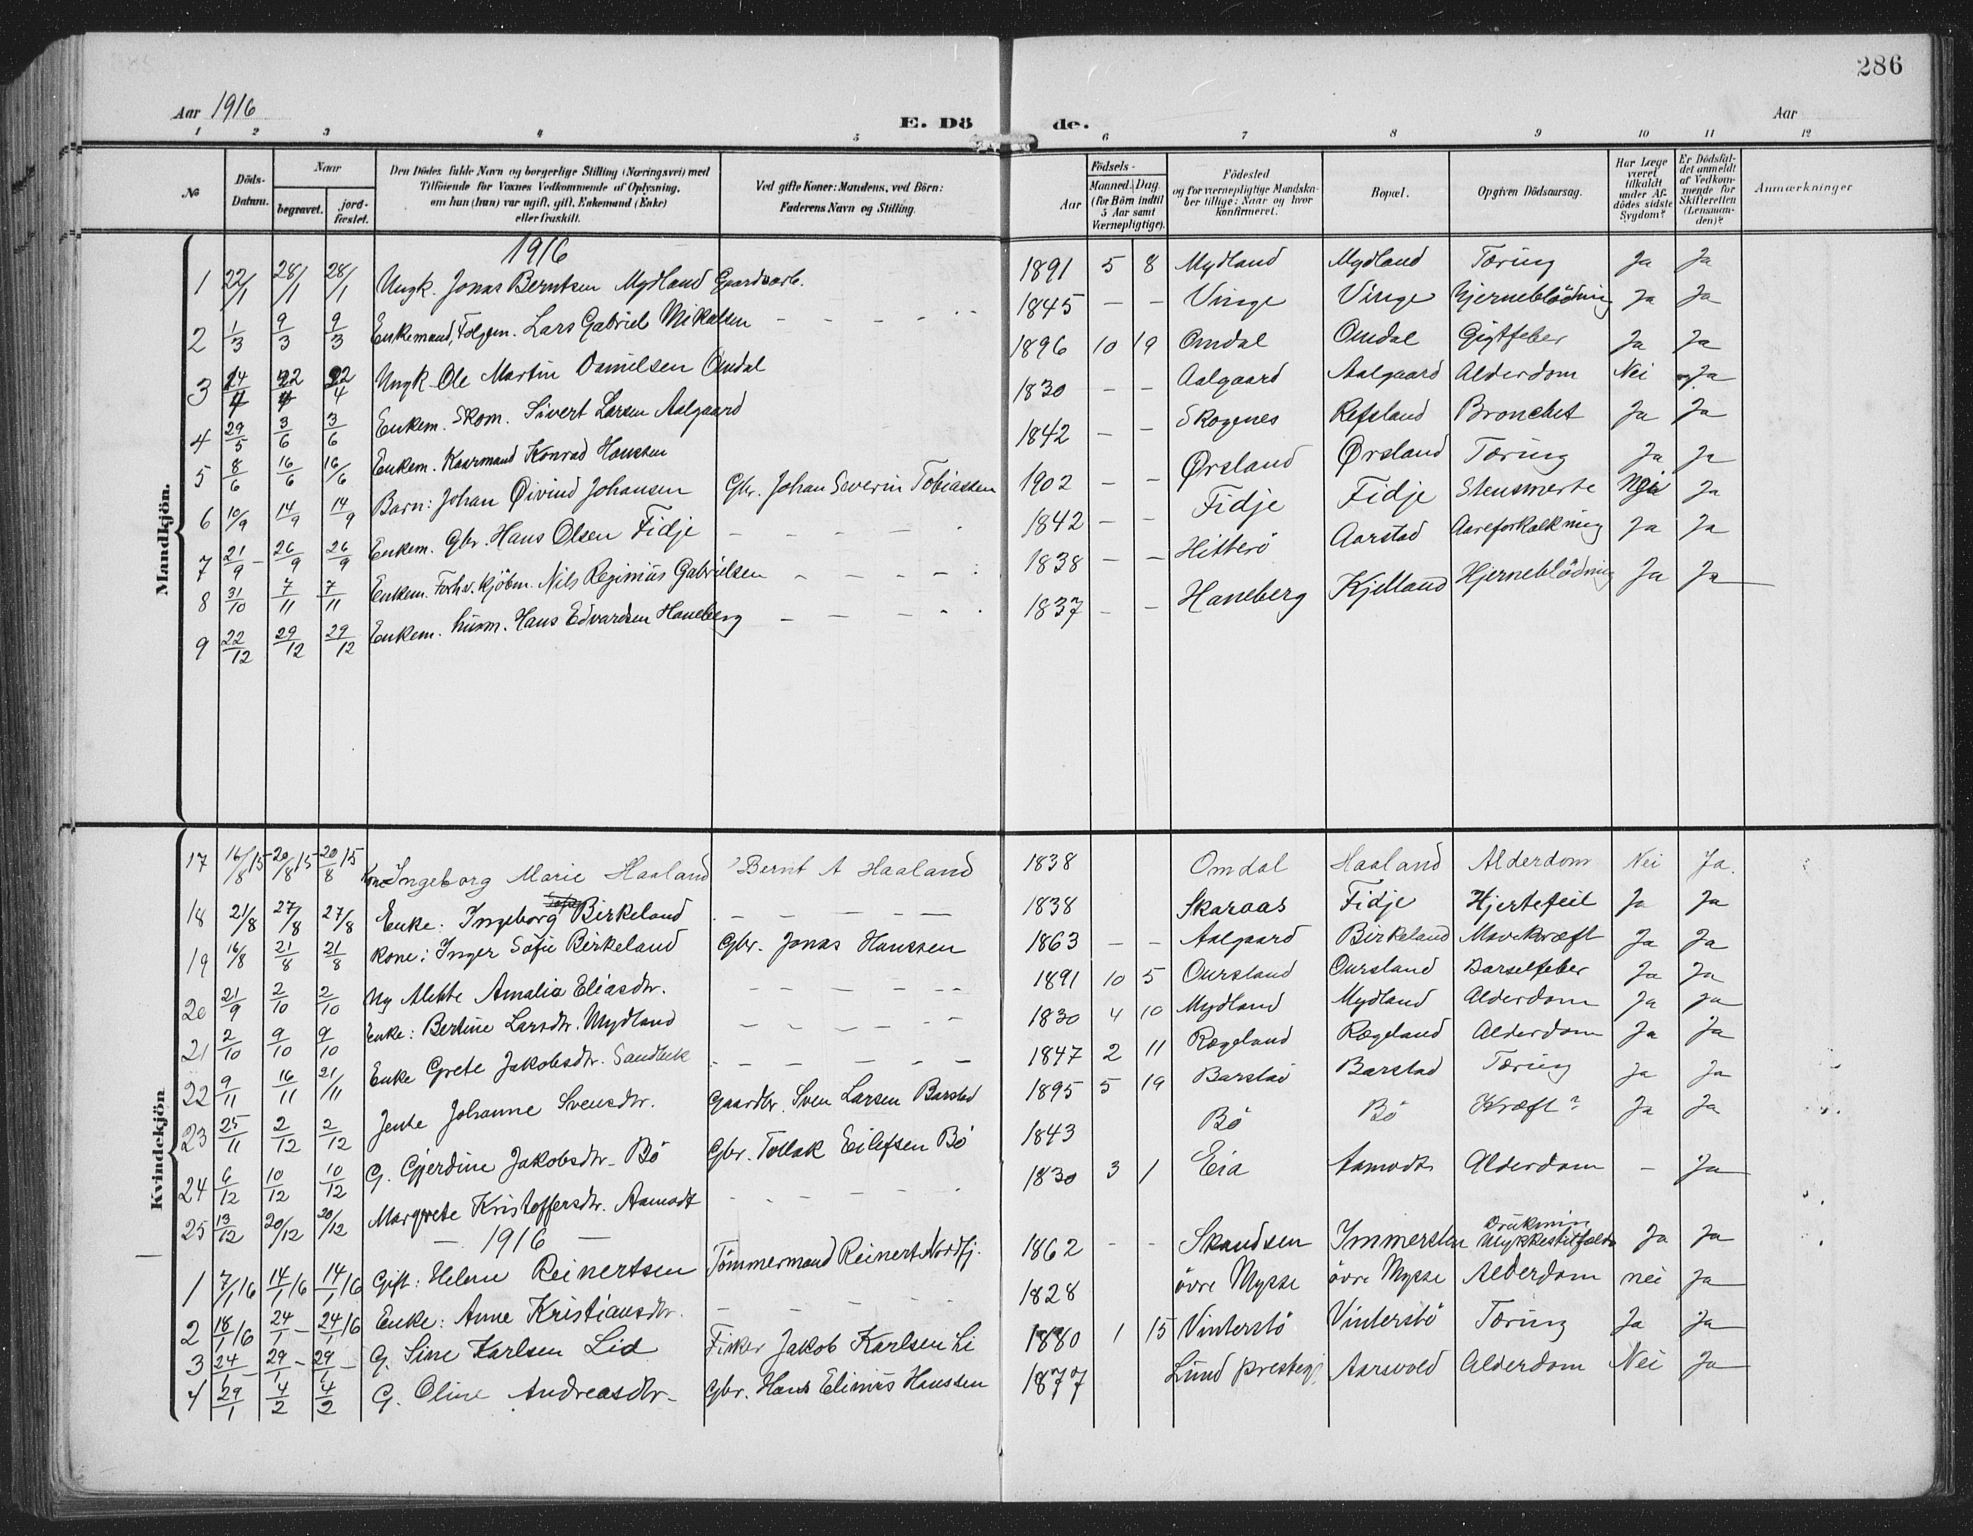 286
Aar 1916
E. Dö de.
Aar
1 2 3 4 5 6 7 8 9 10 11 12
No
Döds-Datum.
Naar
begravet.
jord-fæstet.
Den Dödes fulde Navn og borgerlige Stilling (Næringsvei) med
Tilföiende for Voxnes Vedkommende af Oplysning,
om han (hun) var ugift, gift, Enkemand (Enke)
eller fraskilt.
Ved gifte Koner: Mandens, ved Börn:
Faderens Navn og Stilling.
Födsels-
Aar
Maaned. Dag.
(for Börn indtil
5 Aar samt
Værnepligtige).
Födested
og for værnepligtige Mandska-
ber tillige: Naar og hvor
konfirmeret.
Bopæl.
Opgiven Dödsaarsag.
Har Læge
været
tilkaldt
under Af-
dödes sidste
Sygdom?
Er Dödsfal-
det anmeldt
af Vedkom-
mende for
Skifteretten
(Lensman-
den)?
Anmærkninger
Mandkjön.
1916
1 22/1 28/1 28/1 Ungk. Jonas Berntsen Mydland Gaardsarb. 1891 5 8 Mydland Mydland Tæring Ja Ja
2 1/3 9/3 9/3 Enkemand, Folgem. Lars Gabriel Mikalsen - - - - 1845 - - Vinge Vinge Hjerneblödning Ja Ja
3 14/4 22/4 22/4 Ungk. Ole Martin Danielsen Omdal 1896 10 19 Omdal Omdal Gigtfeber Ja Ja
4 29/5 3/6 3/6 Enkem. Skom. Sivert Larsen Aalgaard 1830 - - Aalgaard Aalgaard Alderdom Nei Ja
5 8/6 16/6 16/6 Enkem. Kaarmand Konrad Hanssen 1842 - - Skogenes Refsland Bronchit Ja Ja
6 10/9 14/9 14/9 Barn: Johan Öivind Johansen Gbr. Johan Severin Tobiassen 1902 - - Ørsland Ørsland Tæring Ja Ja
7 21/9 - 26/9 26/9 Enkem. Gbr. Hans Olsen Fidje - - - - 1842 - - Fidje Fidje Stensmerte Nei Ja
8 31/10 7/11 7/11 Enkem. Forhv. kjöbm. Nils Regimius Gabrielsen - - - - 1838 - - Hitterö Aarstad Aareforkalkning Ja Ja
9 22/12 29/12 29/12 Enkem. husm. Hans Edvardsen Haneberg - - - - 1837 - - Haneberg Kjelland Hjerneblödning Ja Ja
Kvindekjön
17 16/8 15 20/8 15 20/8 15 Kone Ingeborg Marie Haaland Bernt A Haaland 1838 Omdal Haaland Alderdom Nei Ja.
18 21/8 27/8 27/8 Enke: Ingeborg Birkeland - - - - 1838 Skaraas Fidje Hjertefeil Ja Ja
19 16/8 21/8 21/8 Kone: Inger Sofie Birkeland Gbr. Jonas Hanssen 1863 - - Aalgaard Birkeland Mavekræft Ja Ja
20 21/9 2/10 2/10 Ug Alette Amalia Eliasdtr. - - - - 1891 10 5 Oursland Oursland Barselfeber Ja Ja
21 2/10 9/10 9/10 Enke: Bertine Larsdtr. Mydland - - - - 1830 4 10 Mydland Mydland Alderdom Ja Ja
22 9/11 16/11 21/11 Enke Grete Jakobsdtr. Sandbek - - - - 1847 2 11 Rægeland Rægeland Alderdom Ja Ja
23 25/11 2/12 2/12 Jente Johanne Svensdtr. Gaardbr. Sven Larsen Barstad 1895 5 19 Barstad Barstad Tæring Ja Ja
24 6/12 10/12 10/12 G. Gjerdine Jakobsdtr. Bö Gbr. Tollak Eilefsen Bö 1843 Bö Bö Kræft? Ja Ja
25 13/12 20/12 20/12 Margrete Kristoffersdtr. Aamodt - - - - 1830 3 1 Eia Aamodt Alderdom - Ja
- 1916 -
1 7/1 16 14/1 16 14/1 16 Gift: Helene Reinertsen Tömmermand Reinert Nordfj. 1862 - - Skandsen Immerstein Ulykkestilfælde Ja Ja
2 18/1 16 24/1 - 24/1 16 Enke: Anne Kristiansdtr. - - - - 1828 övre Mysse övre Mysse Alderdom nei Ja
3 24/1 - 29/1 - 29/1 - G. Sine Karlsen Lid Fisker Jakob Karlsen Li 1880 1 15 Vinterstö Vinterstö Tæring Ja Ja
4 29/1 4/2 4/2 G. Oline Andreasdtr. Gbr. Hans Elinius Hanssen 1877 Lund prestegj. Aarsvold Alderdom Nei Ja